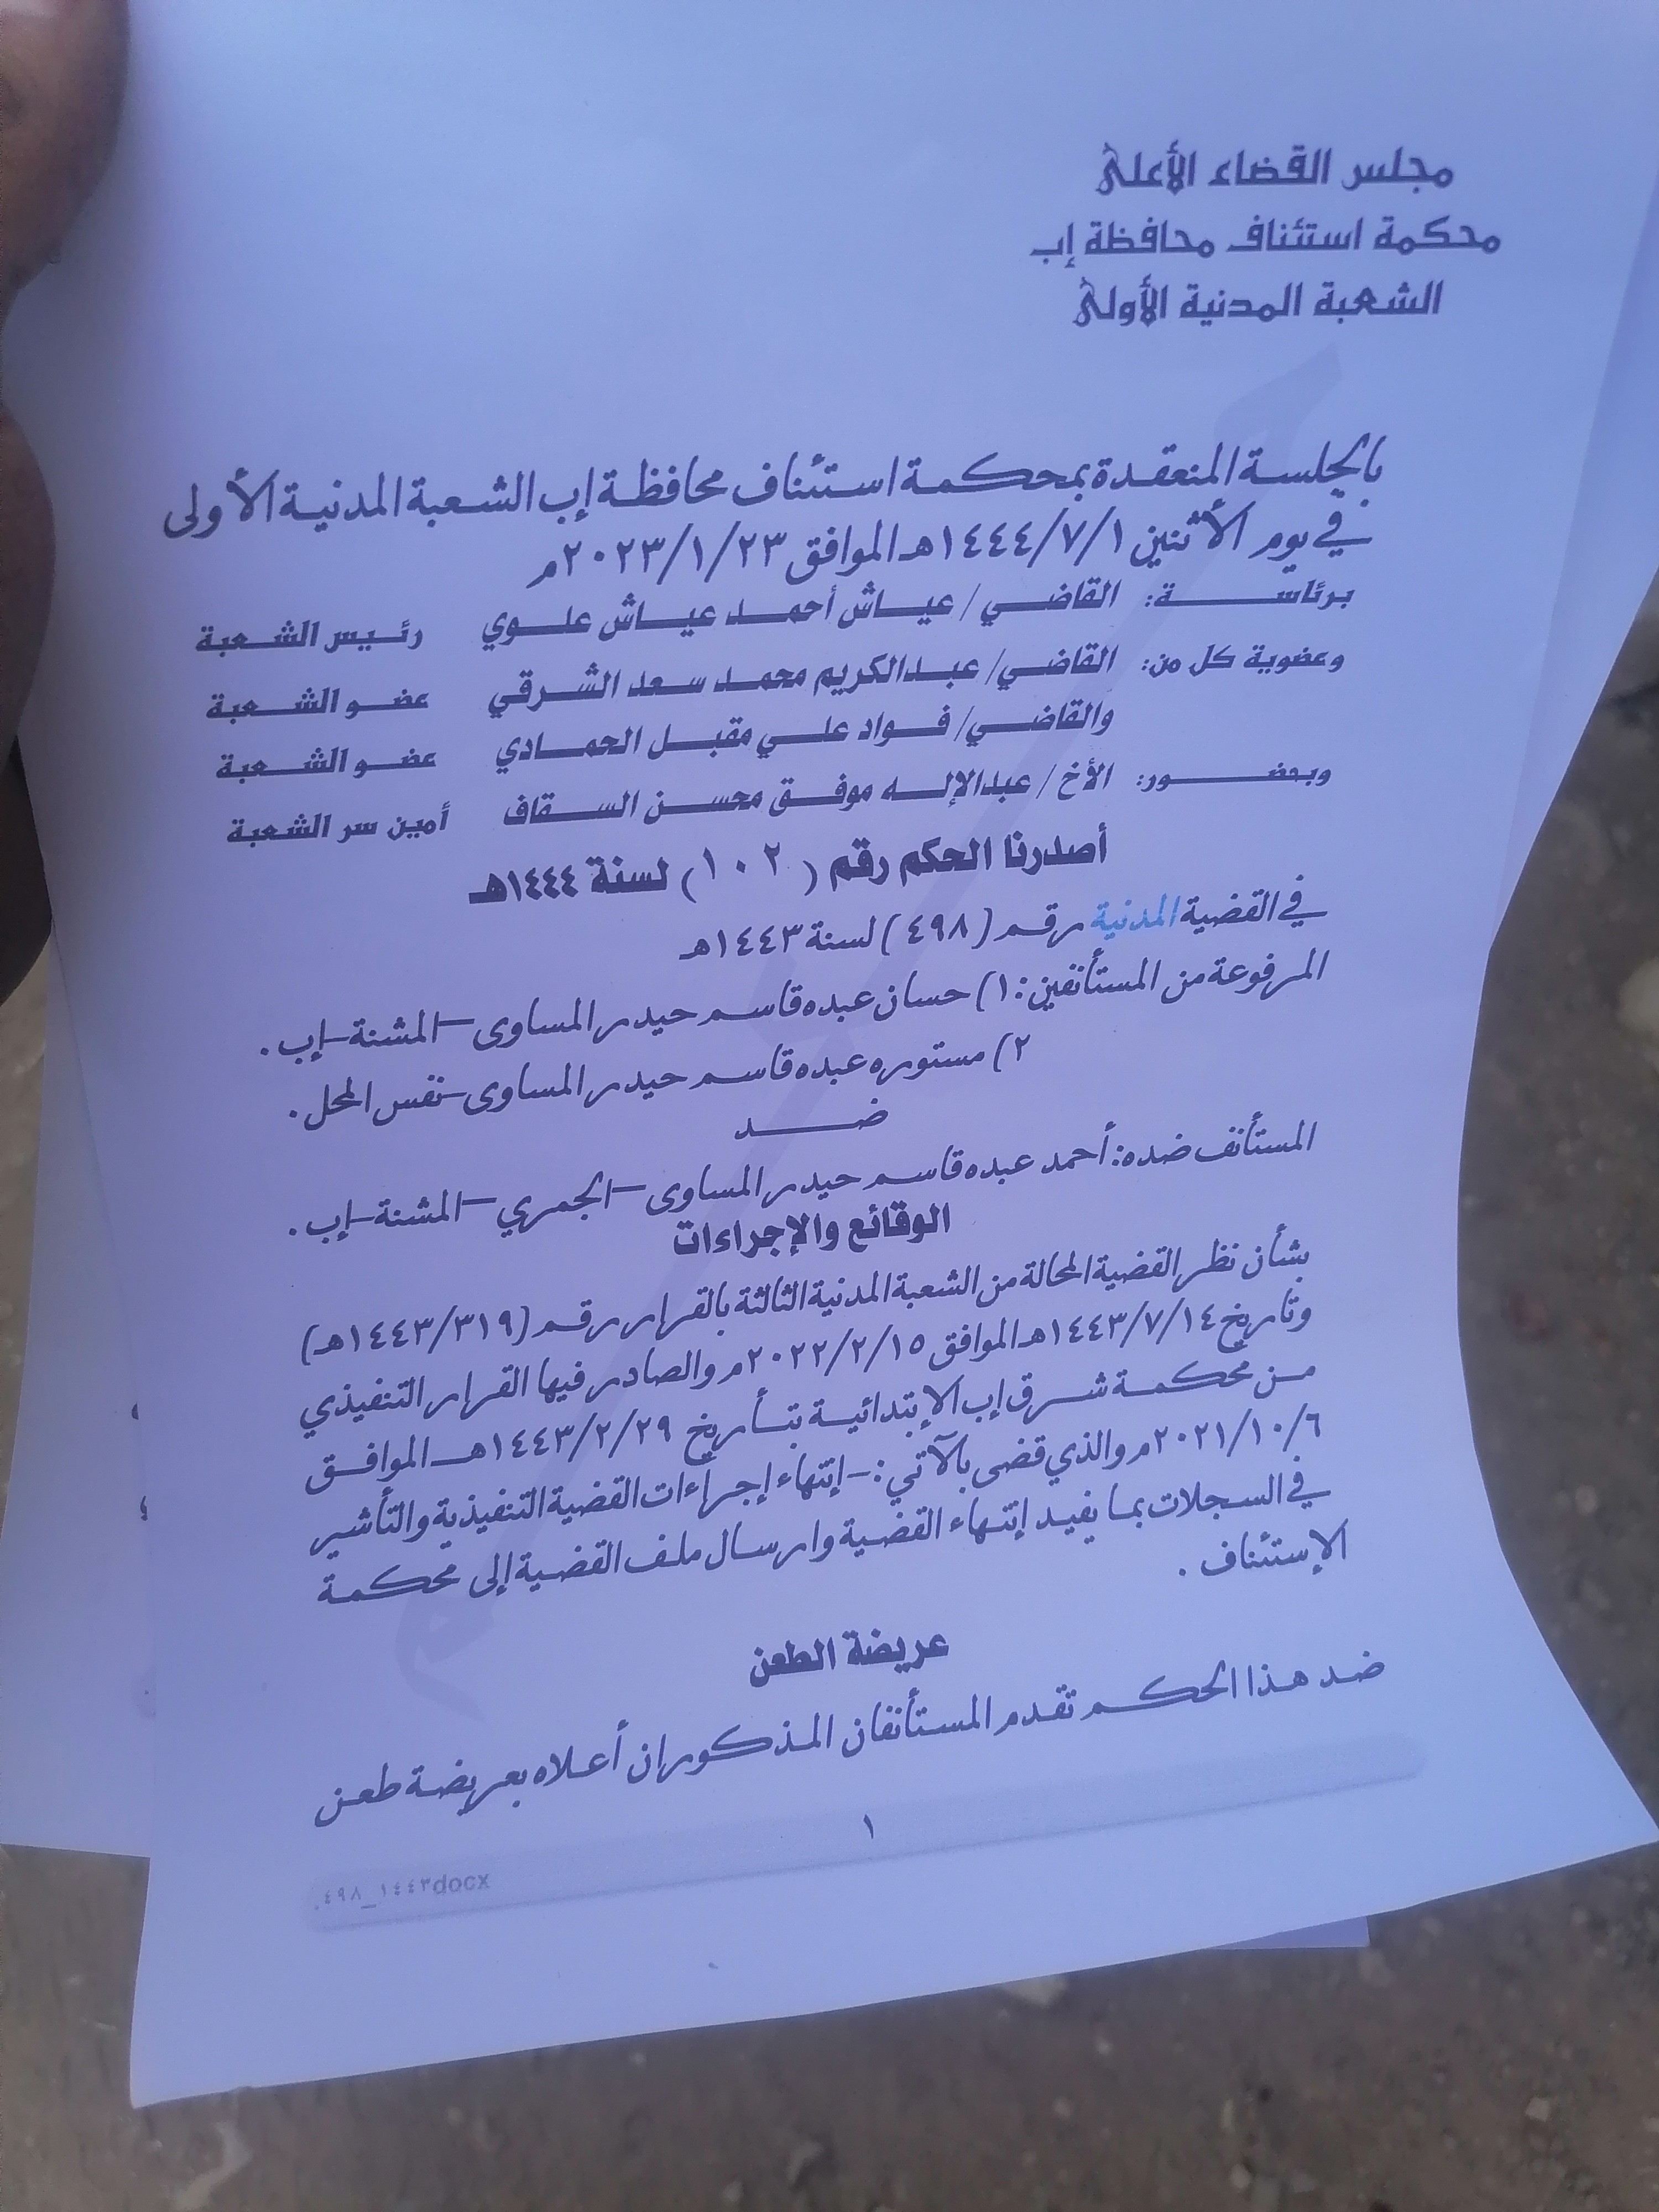 مجلس القضاء الأعلى
محكمة استئناف محافظة إب
الشعبة المدنية الأولى
بالجلسة المنعقدة بمحكمة استئناف محافظة إب الشعبة المدنية الأولى
في يوم الأثنين ١٤٤٤/٧/١هـ الموافق ٢٠٢٣/١/٢٣م
برئاســـــة: القاضي/ عياش أحمد عياش علوي رئيس الشعبة
وعضوية كل من: القاضي/ عبدالكريم محمد سعد الشرقي عضو الشعبة
والقاضي/ فواد علي مقبل الحمادي عضو الشعبة
وبحضـــــور: الأخ/ عبدالإله موفق محسن السقاف أمين سر الشعبة
أصدرنا الحكم رقم (١٠٢) لسنة ١٤٤٤هـ
في القضية المدنية رقم (٤٩٨) لسنة ١٤٤٣هـ
المرفوعة من المستأنفين: ١) حسان عبده قاسم حيدر المساوى – المشنة – إب.
٢) مستوره عبده قاسم حيدر المساوى – نفس المحل.
ضـــــد
المستأنف ضده: أحمد عبده قاسم حيدر المساوى – الجمري – المشنة – إب.
الوقائع والإجراءات
بشأن نظر القضية المحالة من الشعبة المدنية الثالثة بالقرار رقم (١٤٤٣/٣١٩هـ)
وتاريخ ١٤٤٣/٧/١٤هـ الموافق ٢٠٢٢/٢/١٥م والصادر فيها القرار التنفيذي
من محكمة شرق إب الإبتدائية بتأريخ ١٤٤٣/٢/٢٩هـ الموافق
٢٠٢١/١٠/٦م والذي قضى بالآتي:- إنتهاء إجراءات القضية التنفيذية والتأشير
في السجلات بما يفيد إنتهاء القضية وارسال ملف القضية إلى محكمة
الإستئناف.
عريضة الطعن
ضد هذا الحكم تقدم المستأنفان المذكوران أعلاه بعريضة طعن
١
٤٩٨_١٤٤٣.docx